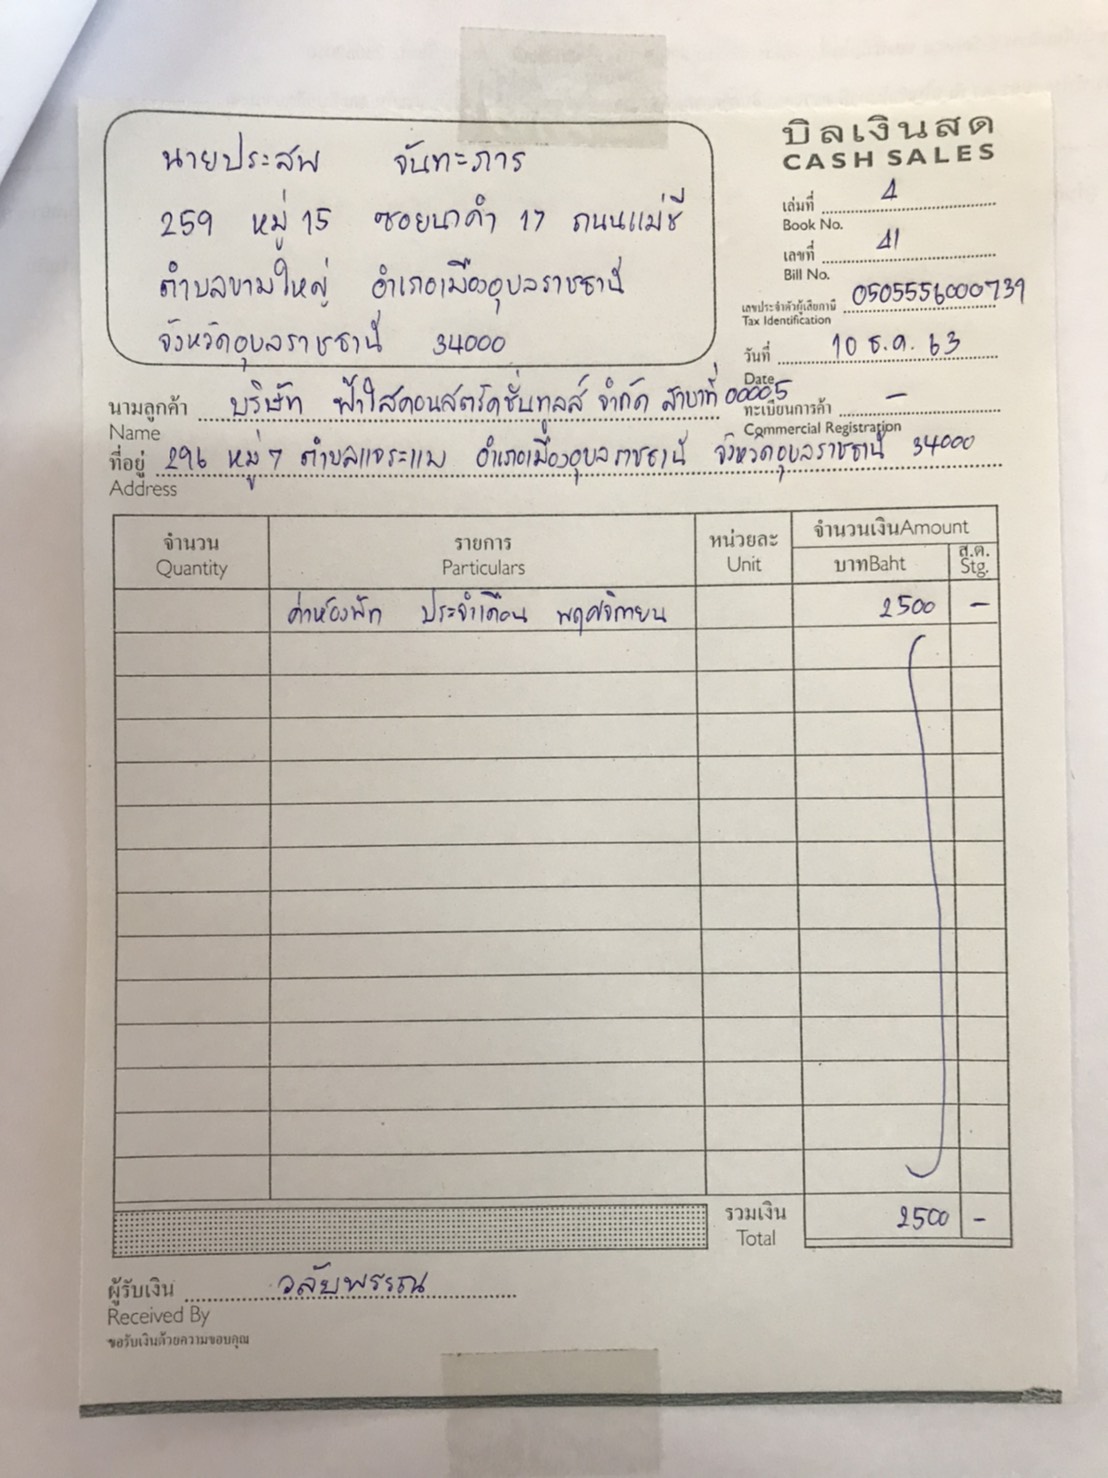 นายประสพ จันทะภาร
259 หมู่ 15 ซอยนาคำ 17 ถนนแม่ชี
ตำบลขามใหญ่ อำเภอเมืองอุบลราชธานี
จังหวัดอุบลราชธานี 34000
บิลเงินสด
CASH SALES
เล่มที่ 4
Book No.
เลขที่ 41
Bill No.
เลขประจำตัวผู้เสียภาษี 0505556000739
Tax Identification
วันที่ 10 ธ.ค. 63
Date
นามลูกค้า บริษัท ฟ้าใสคอนสตรัคชั่นทูลส์ จำกัด สาขาที่ 00005
Name
ทะเบียนการค้า -
Commercial Registration
ที่อยู่ 296 หมู่ 7 ตำบลแจระแม อำเภอเมืองอุบลราชธานี จังหวัดอุบลราชธานี 34000
Address
จำนวน รายการ หน่วยละ จำนวนเงินAmount
Quantity Particulars Unit บาทBaht ส.ต. Stg.
ค่าห้องพัก ประจำเดือน พฤศจิกายน 2500 -
รวมเงิน 2500 -
Total
ผู้รับเงิน วลัยพรรณ
Received By
ขอรับเงินด้วยความขอบคุณ